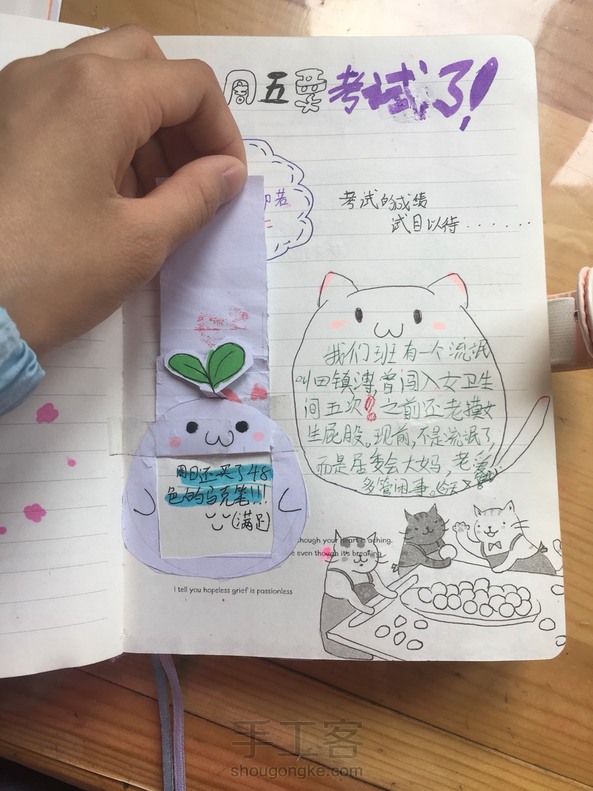 周五要考试了!
考试的成绩
试目以待......
我们班有一个流氓
叫田镇溥曾闯入女卫生
间五次!之前还老摸女
生屁股。现前,不是流氓了,
而是居委会大妈,老爱
多管闲事。
周日还买了48
色的马克笔!!!
(满足)
though your heart is aching.
even though it's breaking
I tell you hopeless grief is passionless
手工客
shougongke.com